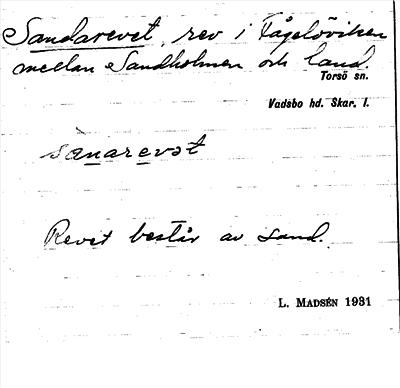 Sandarevet, rev i Fågelöviken
mellan Sandholmen och land.
Torsö sn.
Vadsbo hd. Skar. l.
sanarevət
Revet består av sand.
L. MADSÉN 1931